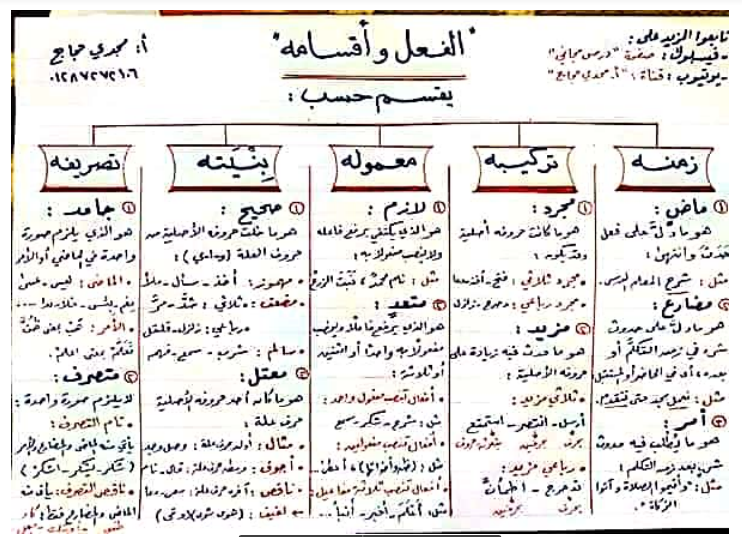 تابعوا المزيد على:
- فيسبوك: صفحة "درس مجاني"
- يوتيوب: قناة: "أ. مجدي حجاج"
"الفعل وأقسامه"
أ: مجدي حجاج
٠١٢٨٧٢٧٢١٠٦
يقسم حسب:
زمنه
① ماضٍ:
هو ما دلَّ على فعل
حَدَثَ وانتهى:
مثل: شرح المعلم الدرس.
② مضارع:
هو ما دلَّ على حدوث
شيء في زمن التكلُّم أو
بعده، أي في الحاضر أو المستقبل
مثل: نعمل بجد حتى نتقدم.
③ أمر:
هو ما يُطلب فيه حدوث
شيء بعد زمن التكلم:
مثل: "وأقيموا الصلاة وآتوا
الزكاة".
تركيبه
① مجرد:
هو ما كانت حروفه أصلية
وقد يكون:
• مجرد ثلاثي: فتح - أخذ - دعا
• مجرد رباعي: دحرج - زلزل
② مزيد:
هو ما حدث فيه زيادة على
حروفه الأصلية:
• ثلاثي مزيد:
أرسل - انتصر - استمتع
بحرف بحرفين بثلاثة حروف
• رباعي مزيد:
تدحرج - اطمأنَّ
بحرف بحرفين
معموله
① لازم:
هو الذي يكتفي برفع فاعله
ولا ينصب مفعولا به:
مثل: نام محمدٌ، نَبَتَ الزرعُ
② متعد:
هو الذي يرفع فاعلًا وينصب
مفعولا به واحدًا أو اثنين
أو ثلاثة:
• أفعال تنصب مفعول واحد:
مثل: شرح - شكر - سمع
• أفعال تنصب مفعولين:
مثل: (ظن وأخواتها)، أعطى...
• أفعال تنصب ثلاثة مفاعيل:
مثل: أعلَمَ - أخبر - أنبأ...
بِنْيَته
① صحيح:
هو ما خلت حروفه الأصلية من
حروف العلة (و-ا-ي):
• مهموز: أخذ - سأل - ملأ
• مضعف: ثلاثي: شدَّ - مرَّ
رباعي: زلزل - قلقل
• سالم: شرب - سمع - فهم
② معتل:
هو ما كان أحد حروفه الأصلية
حرف علة:
• مثال: أوله حرف علة: وصل - وجد
• أجوف: وسطه حرف علة: قال - نام
• ناقص: آخره حرف علة: سعى - دعا
لفيف:
تصريفه
① جامد:
هو الذي يلزم صورة
واحدة في الماضي أو الأمر
• الماضي: ليس - عسى
نعم - بئس - خلا - عدا ...
• الأمر: هَبْ بمعنى ظُنَّ
تَعَلَّمْ بمعنى اعلم.
② متصرف:
لا يلزم صورة واحدة:
• تام التصرف:
يأتي منه الماضي والمضارع والأمر
(شكر - يشكر - اشكر)
• ناقص التصرف: يأتي منه
الماضي والمضارع فقط: كاد